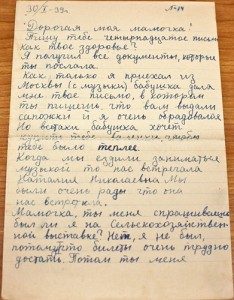 30/X-39г. №14
Дорогая, моя мамочка!
Пишу тебе четырнадцатое письмо
как твое здоровье?
Я получил все документы, которые
ты послала.
Как только я приехал из
Москвы (с музыки) бабушка дала
мне твое письмо, в котором
ты пишешь что вам выдали
сапожки и я очень обрадовался
Но всётаки бабушка хочет
тебе валенки чтобы
тебе было теплее.
Когда мы ездили заниматься
музыкой то нас встречала
Наталия Николаевна Мы
были очень рады что она
нас встретила.
Мамочка, ты меня спрашивала
был ли я на Сельскохозяйствен
ной выставке? Нет, я не был,
потому что билеты очень трудно
достать. Потом ты меня